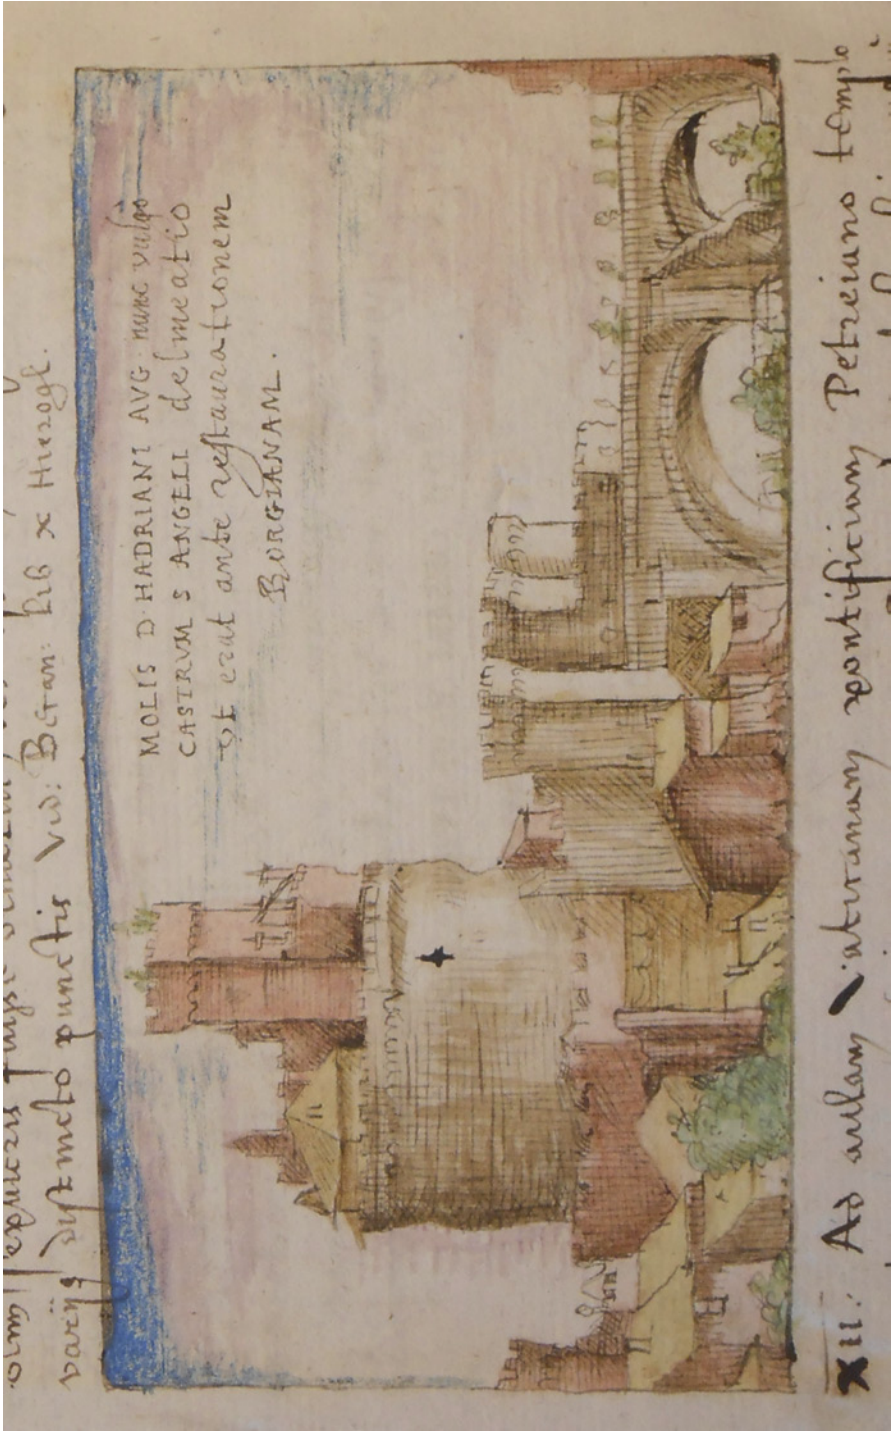 varijs distincto punctis vid: Beran: Lib x Hierogl.
MOLIS D. HADRIANI AVG. nunc vulgo
CASTRVM S ANGELI delineatio
ut erat ante restaurationem
BORGIANAM.
XII. Ad aulam pontificiam Petreiano templo